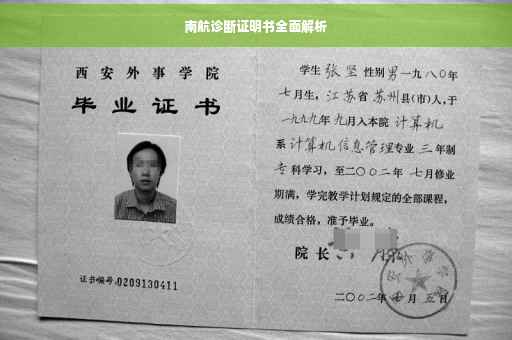 南航诊断证明书全面解析
西安外事学院
毕业证书
证书编号:0209130411
学生 张坚 性别 男 一九八〇年
七月生，江苏省苏州县(市)人，于
一九九九年九月入本院 计算机
系 计算机信息管理专业 三 年制
专科学习，至二〇〇二年 七月修业
期满，学完教学计划规定的全部课程，
成绩合格，准予毕业。
院长
二〇〇二年 月五日